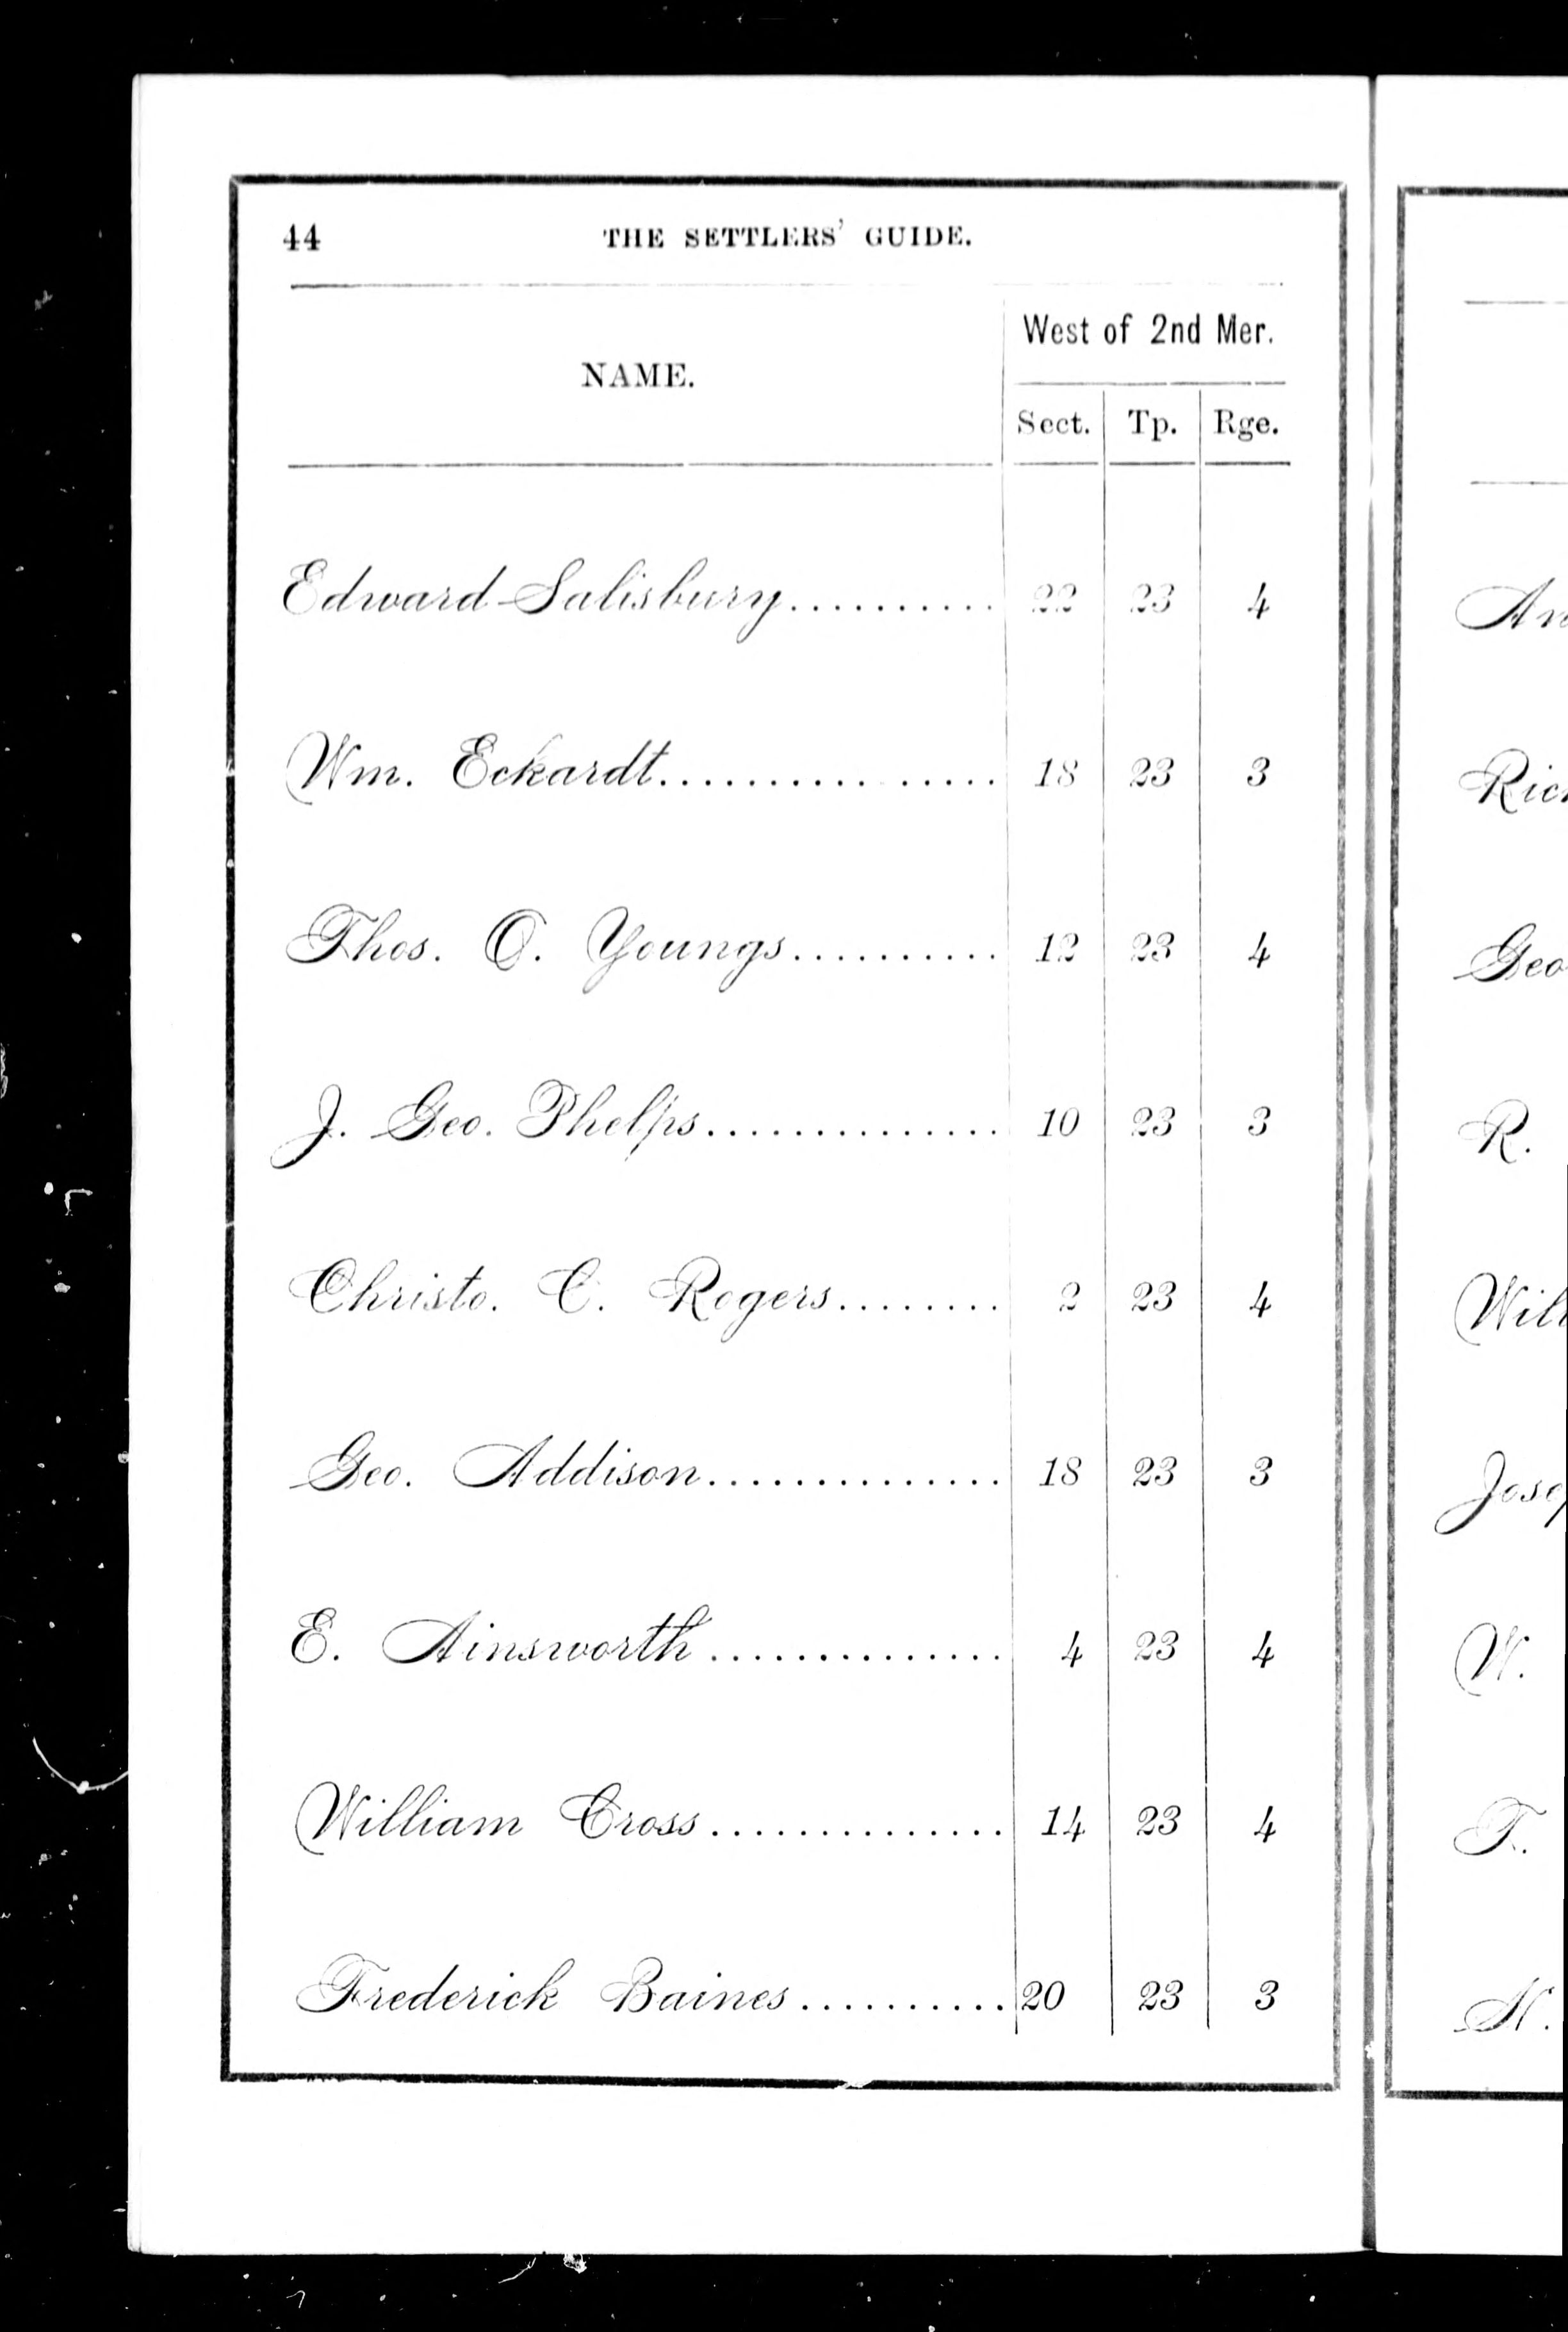 44 THE SETTLERS' GUIDE.
West of 2nd Mer.
NAME.
Sect. Tp. Rge.
Edward Salisbury.......... 22 23 4
Wm. Eckardt................ 18 23 3
Thos. O. Youngs.......... 12 23 4
J. Geo. Phelps.............. 10 23 3
Christo. C. Rogers........ 2 23 4
Geo. Addison.............. 18 23 3
E. Ainsworth.............. 4 23 4
William Cross.............. 14 23 4
Frederick Baines.......... 20 23 3
Geo
R.
W.
T.